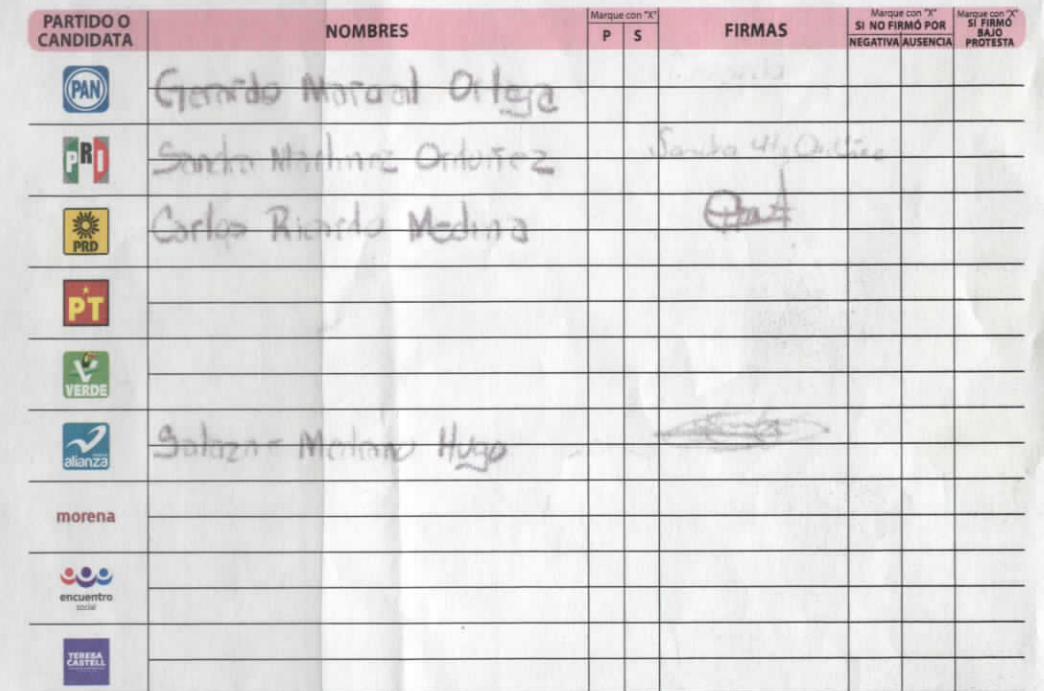 PARTIDO O CANDIDATA
NOMBRES
Marque con "X"
P S
FIRMAS
Marque con "X"
SI NO FIRMÓ POR
NEGATIVA AUSENCIA
Marque con "X"
SI FIRMÓ BAJO PROTESTA
PAN Gerardo Ortega
PRI Sandra Martinez Orduñez Sandra
PRD Carlos Ricardo Medina
PT
VERDE
alianza Salazar Medrano Hugo
morena
encuentro social
TERESA CASTELL